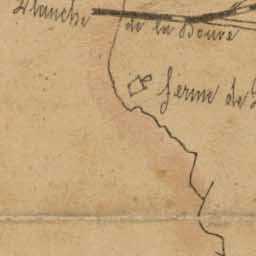 Planche
de la Bouve
ferme de